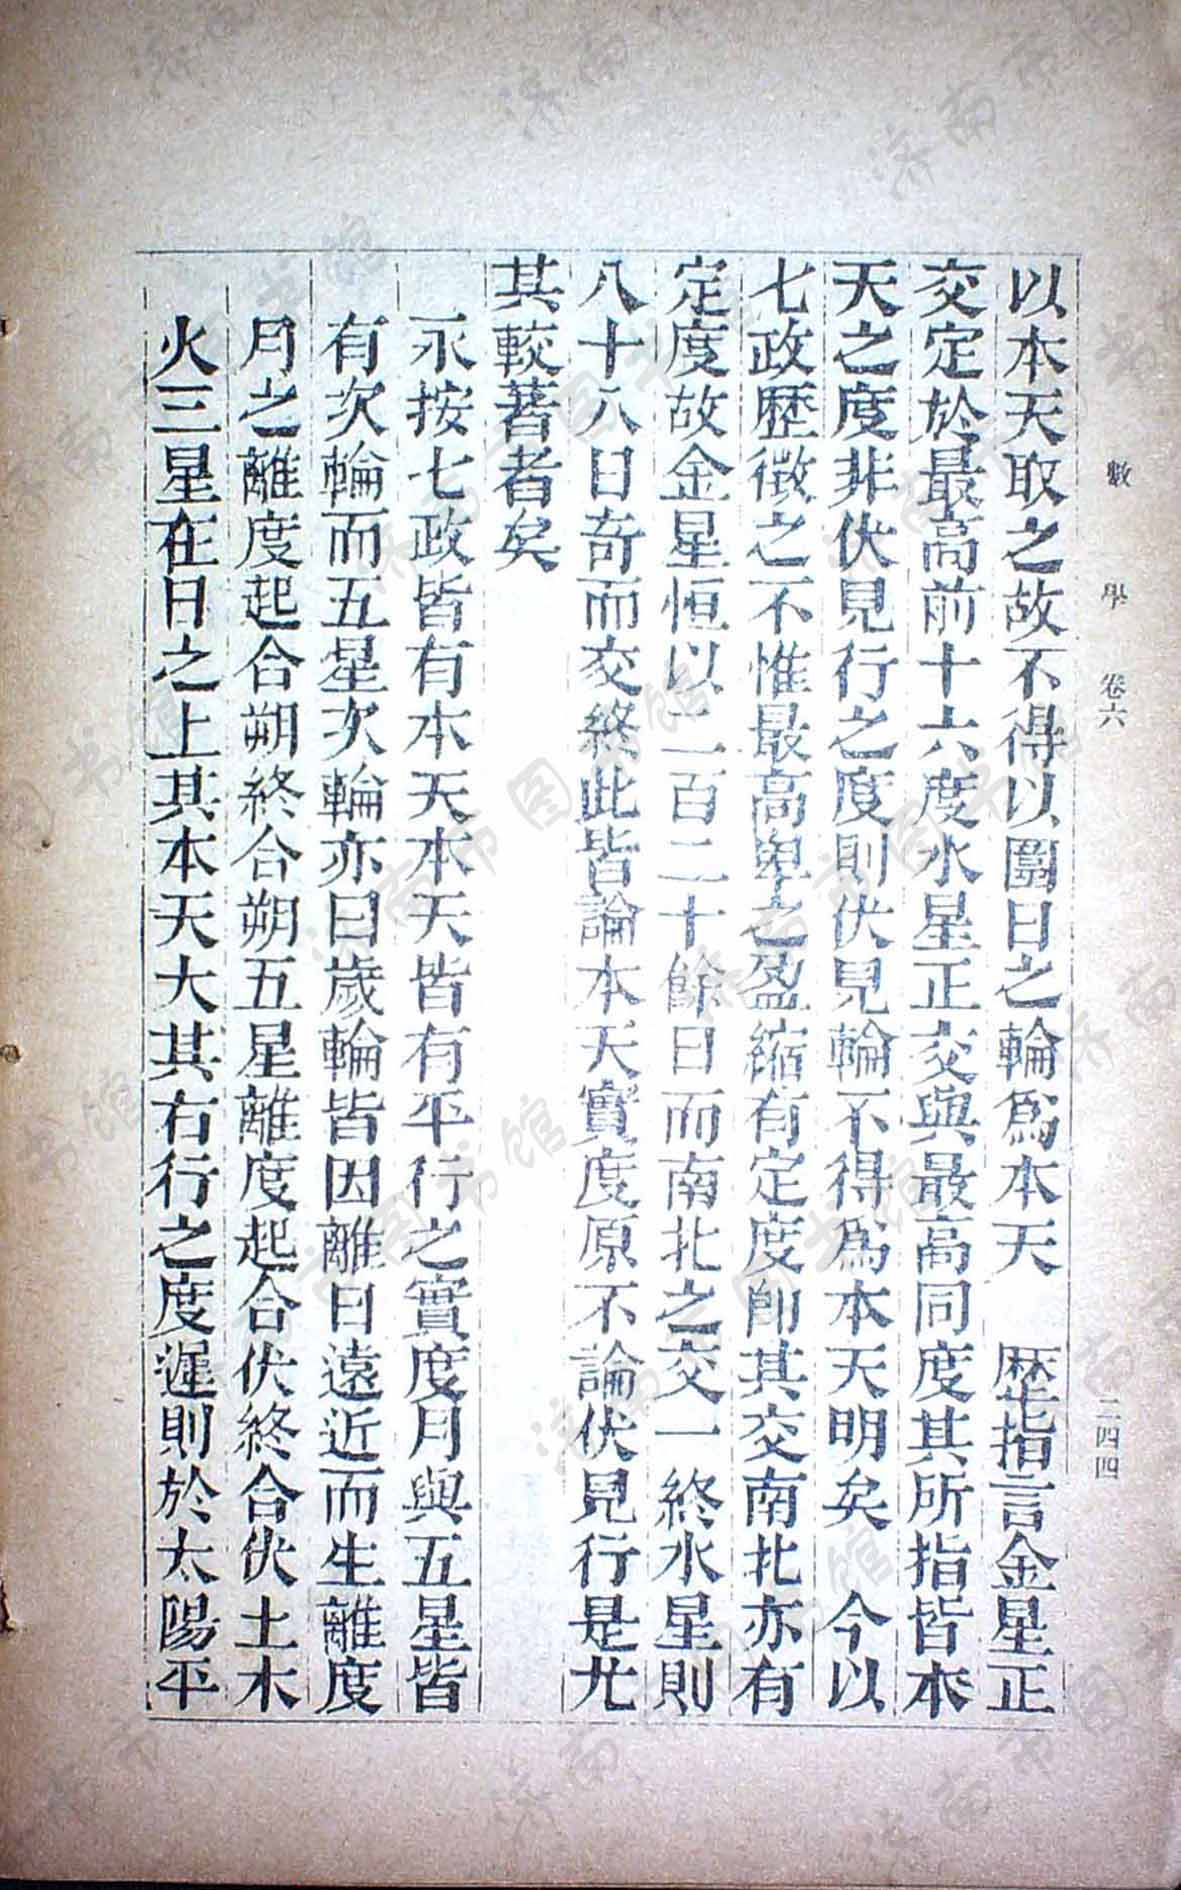 數 學 卷六 二四四
以本天取之故不得以圍日之輪爲本天 歷指言金星正
交定於最高前十六度水星正交與最高同度其所指皆本
天之度非伏見行之度則伏見輪不得爲本天明矣 今以
七政歷徵之不惟最高卑之盈縮有定度卽其交南北亦有
定度故金星恒以二百二十餘日而南北之交一終水星則
八十八日奇而交終此皆論本天實度原不論伏見行是尤
其較著者矣
永按七政皆有本天本天皆有平行之實度月與五星皆
有次輪而五星次輪亦曰歲輪皆因離日遠近而生離度
月之離度起合朔終合朔五星離度起合伏終合伏土木
火三星在日之上其本天大其右行之度遲則於太陽平
济南市图书馆